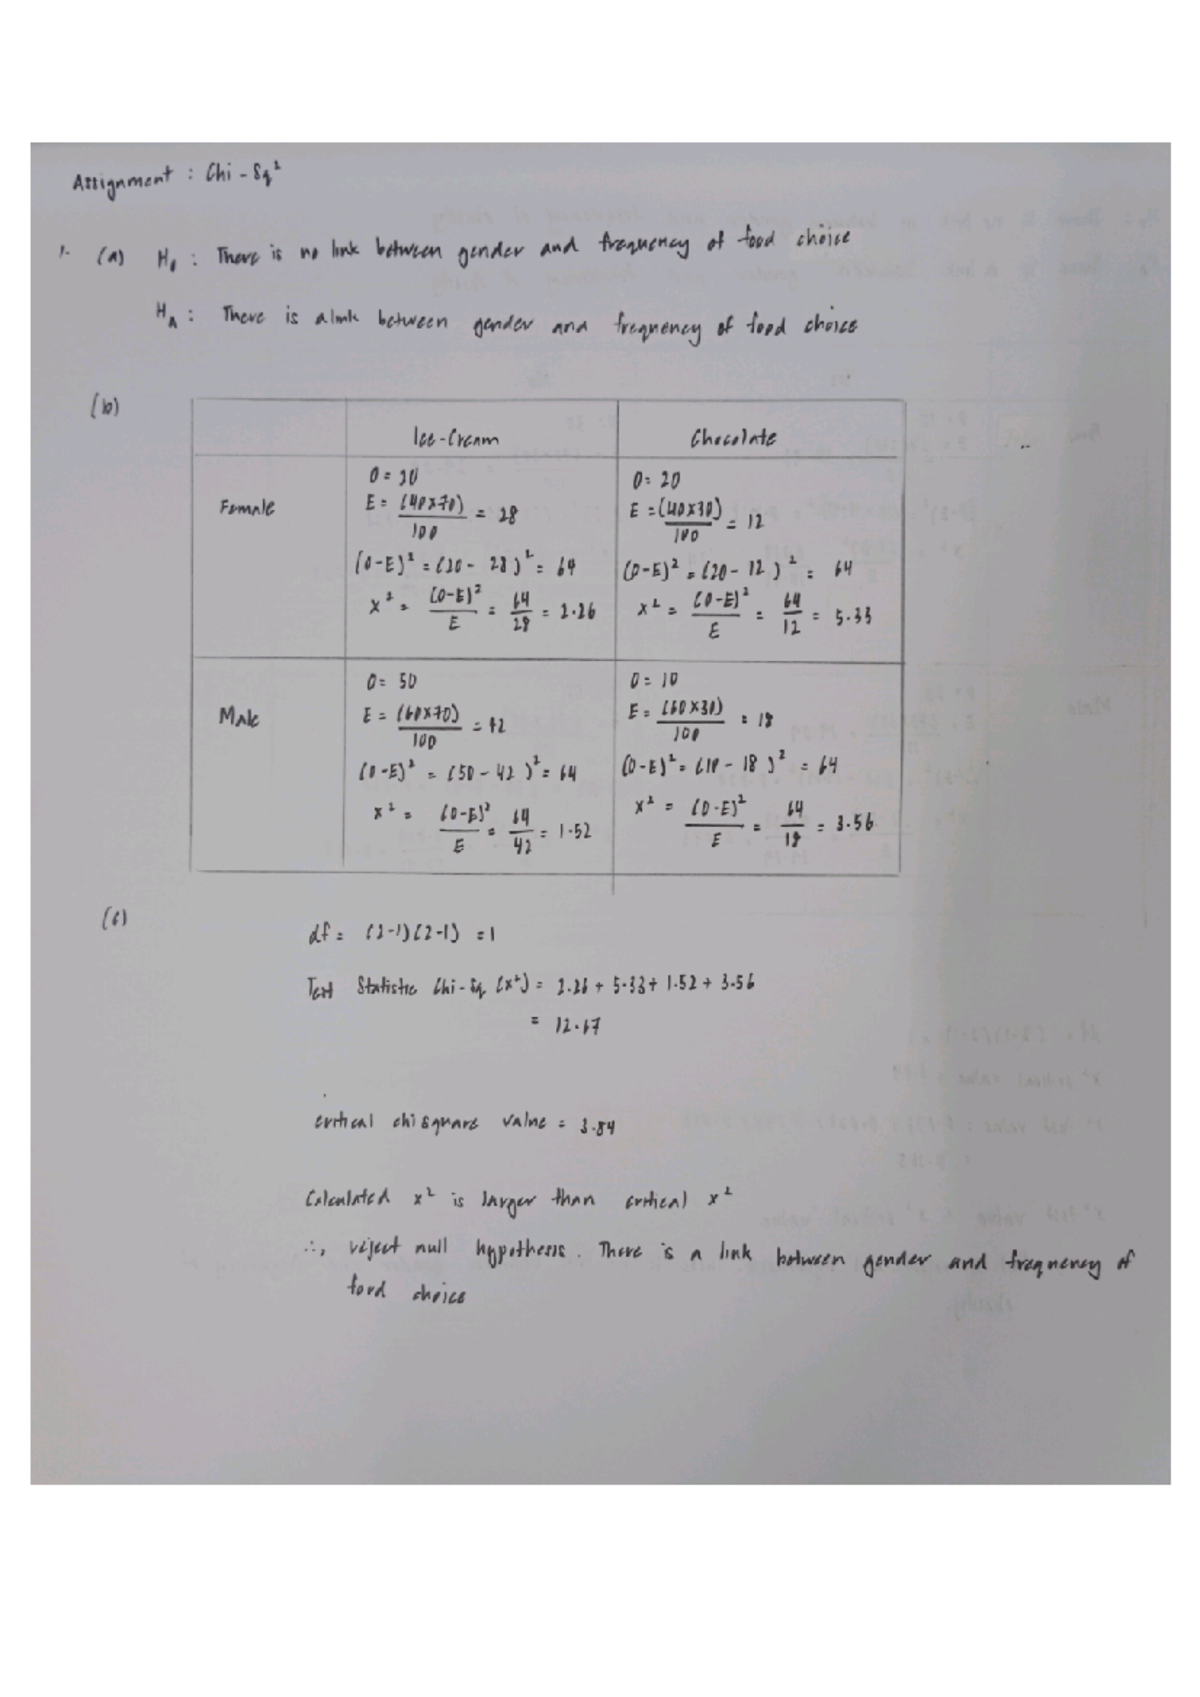 Assignment : Chi - Sq²
1. (a) H₀ : There is no link between gender and frequency of food choice
H_A : There is a link between gender and frequency of food choice
(b)
Ice-Cream Chocolate
Female
O = 20
E = (40x70)/100 = 28
(O-E)² = (20 - 28)² = 64
x² = (O-E)²/E = 64/28 = 2.26
O = 20
E = (40x30)/100 = 12
(O-E)² = (20 - 12)² = 64
x² = (O-E)²/E = 64/12 = 5.33
Male
O = 50
E = (60x70)/100 = 42
(O-E)² = (50 - 42)² = 64
x² = (O-E)²/E = 64/42 = 1.52
O = 10
E = (60x30)/100 = 18
(O-E)² = (10 - 18)² = 64
x² = (O-E)²/E = 64/18 = 3.56
(c)
df = (2-1)(2-1) = 1
Test Statistic Chi-Sq (x²) = 2.26 + 5.33 + 1.52 + 3.56
= 12.67
critical chi square value = 3.84
Calculated x² is larger than critical x²
∴, reject null hypothesis. There is a link between gender and frequency of
food choice